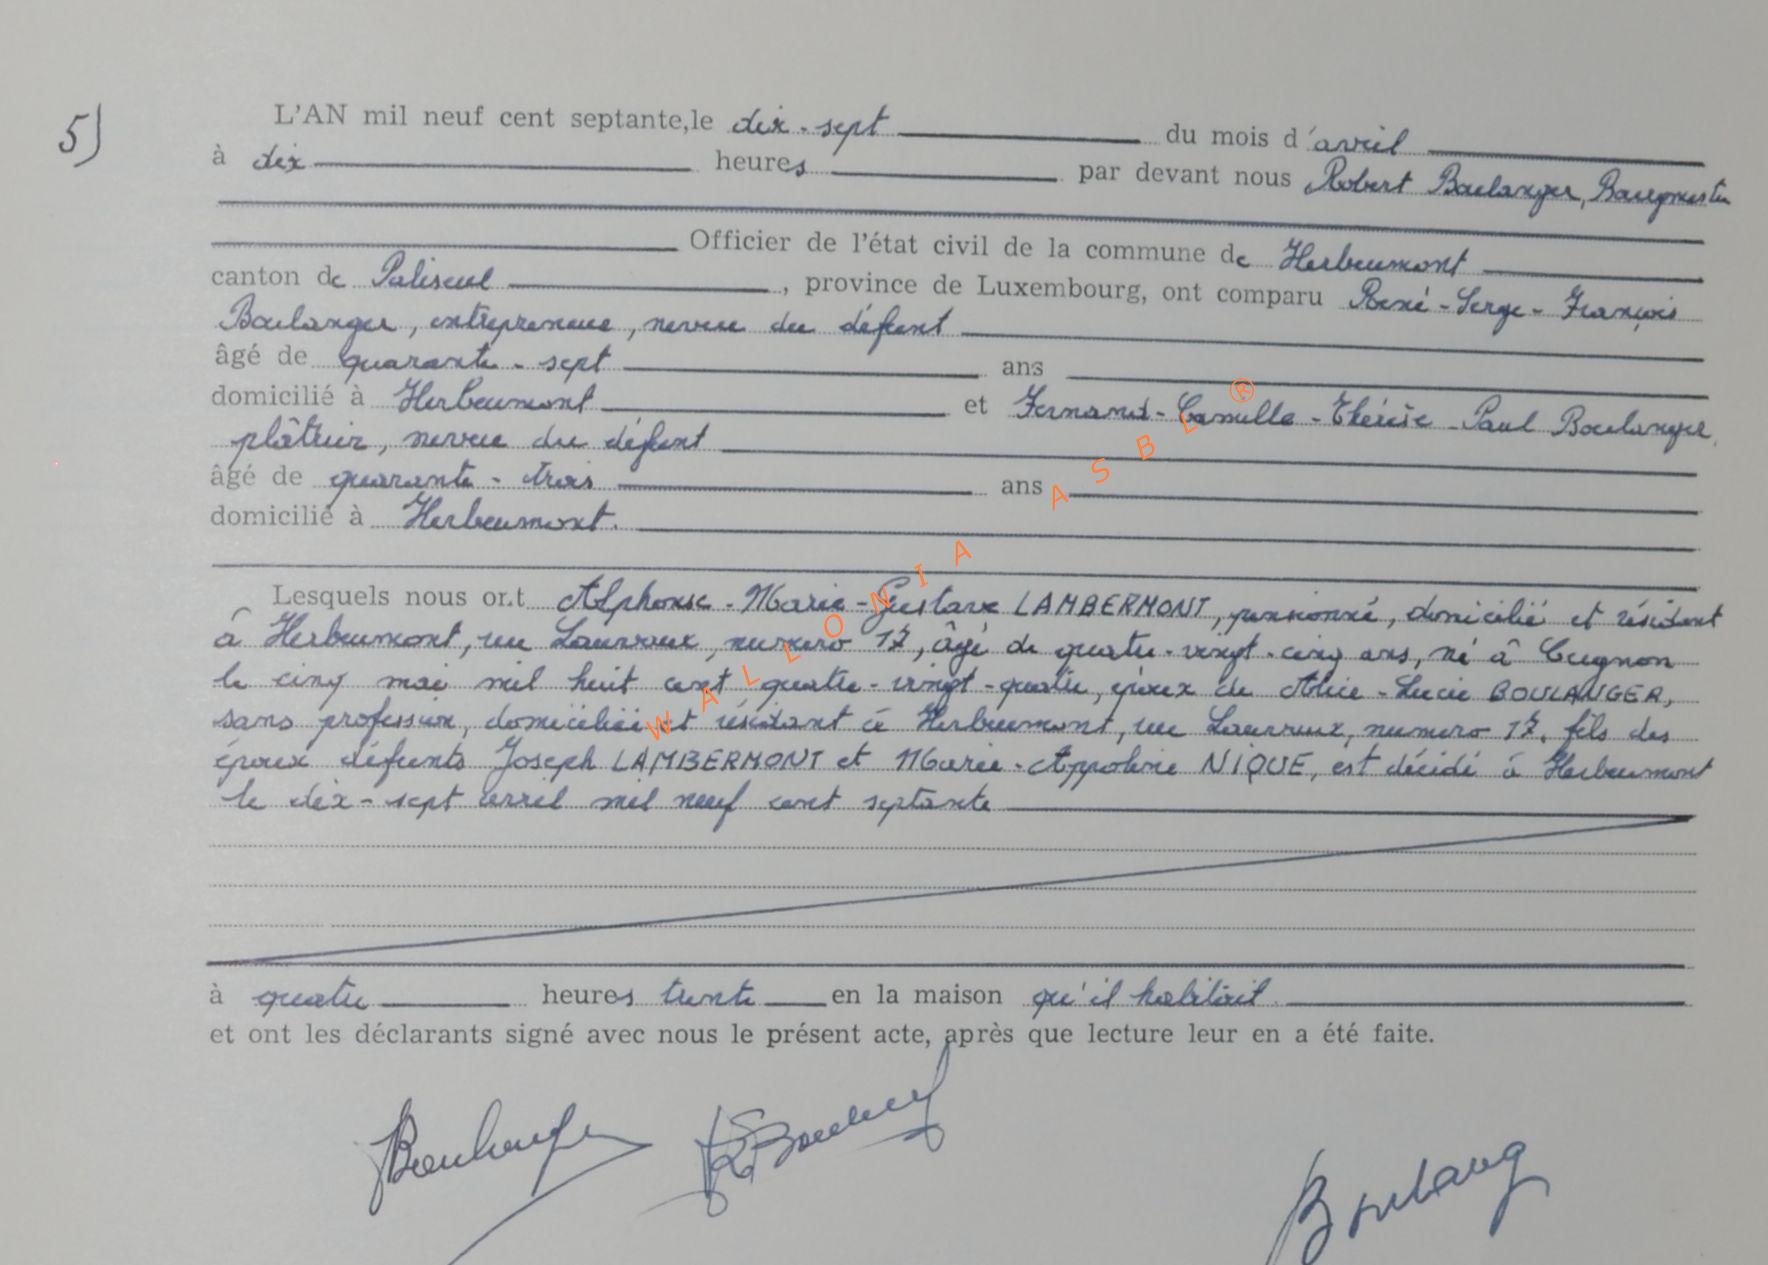 5)
L'AN mil neuf cent septante, le dix-sept du mois d'avril
à dix heures par devant nous Robert Boulanger, Bourgmestre
Officier de l'état civil de la commune de Herbeumont
canton de Paliseul, province de Luxembourg, ont comparu René-Serge-François
Boulanger, entrepreneur, neveu du défunt
âgé de quarante-sept ans
domicilié à Herbeumont et Fernand-Camille-Thérèse-Paul Boulanger,
plâtrier, neveu du défunt
âgé de quarante-trois ans
domicilié à Herbeumont.
Lesquels nous ont Alphonse-Marie-Gustave LAMBERMONT, pensionné, domicilié et résidant
à Herbeumont, rue Lauvaux, numéro 17, âgé de quatre-vingt-cinq ans, né à Cugnon
le cinq mai mil huit cent quatre-vingt-quatre, époux de Alice-Lucie BOULANGER,
sans profession, domiciliée et résidant à Herbeumont, rue Lauvaux, numéro 17, fils des
époux défunts Joseph LAMBERMONT et Marie-Appoline NIQUE, est décédé à Herbeumont
le dix-sept avril mil neuf cent septante
à quatre heures trente en la maison qu'il habitait
et ont les déclarants signé avec nous le présent acte, après que lecture leur en a été faite.
Boulanger
Boulang
WALLONIA ASBL ®